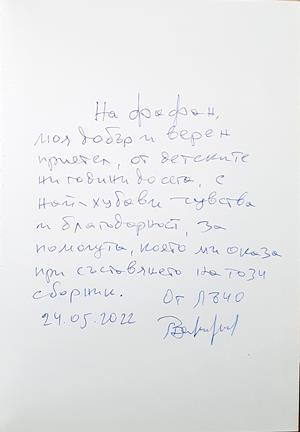 На фафан,
моя добър и верен
приятел, от детските
ни години до сега, с
най-хубави чувства
и благодарност, за
помощта, която ми оказа
при съставянето на този
сборник. От ЛЪЧО
24.05.2022